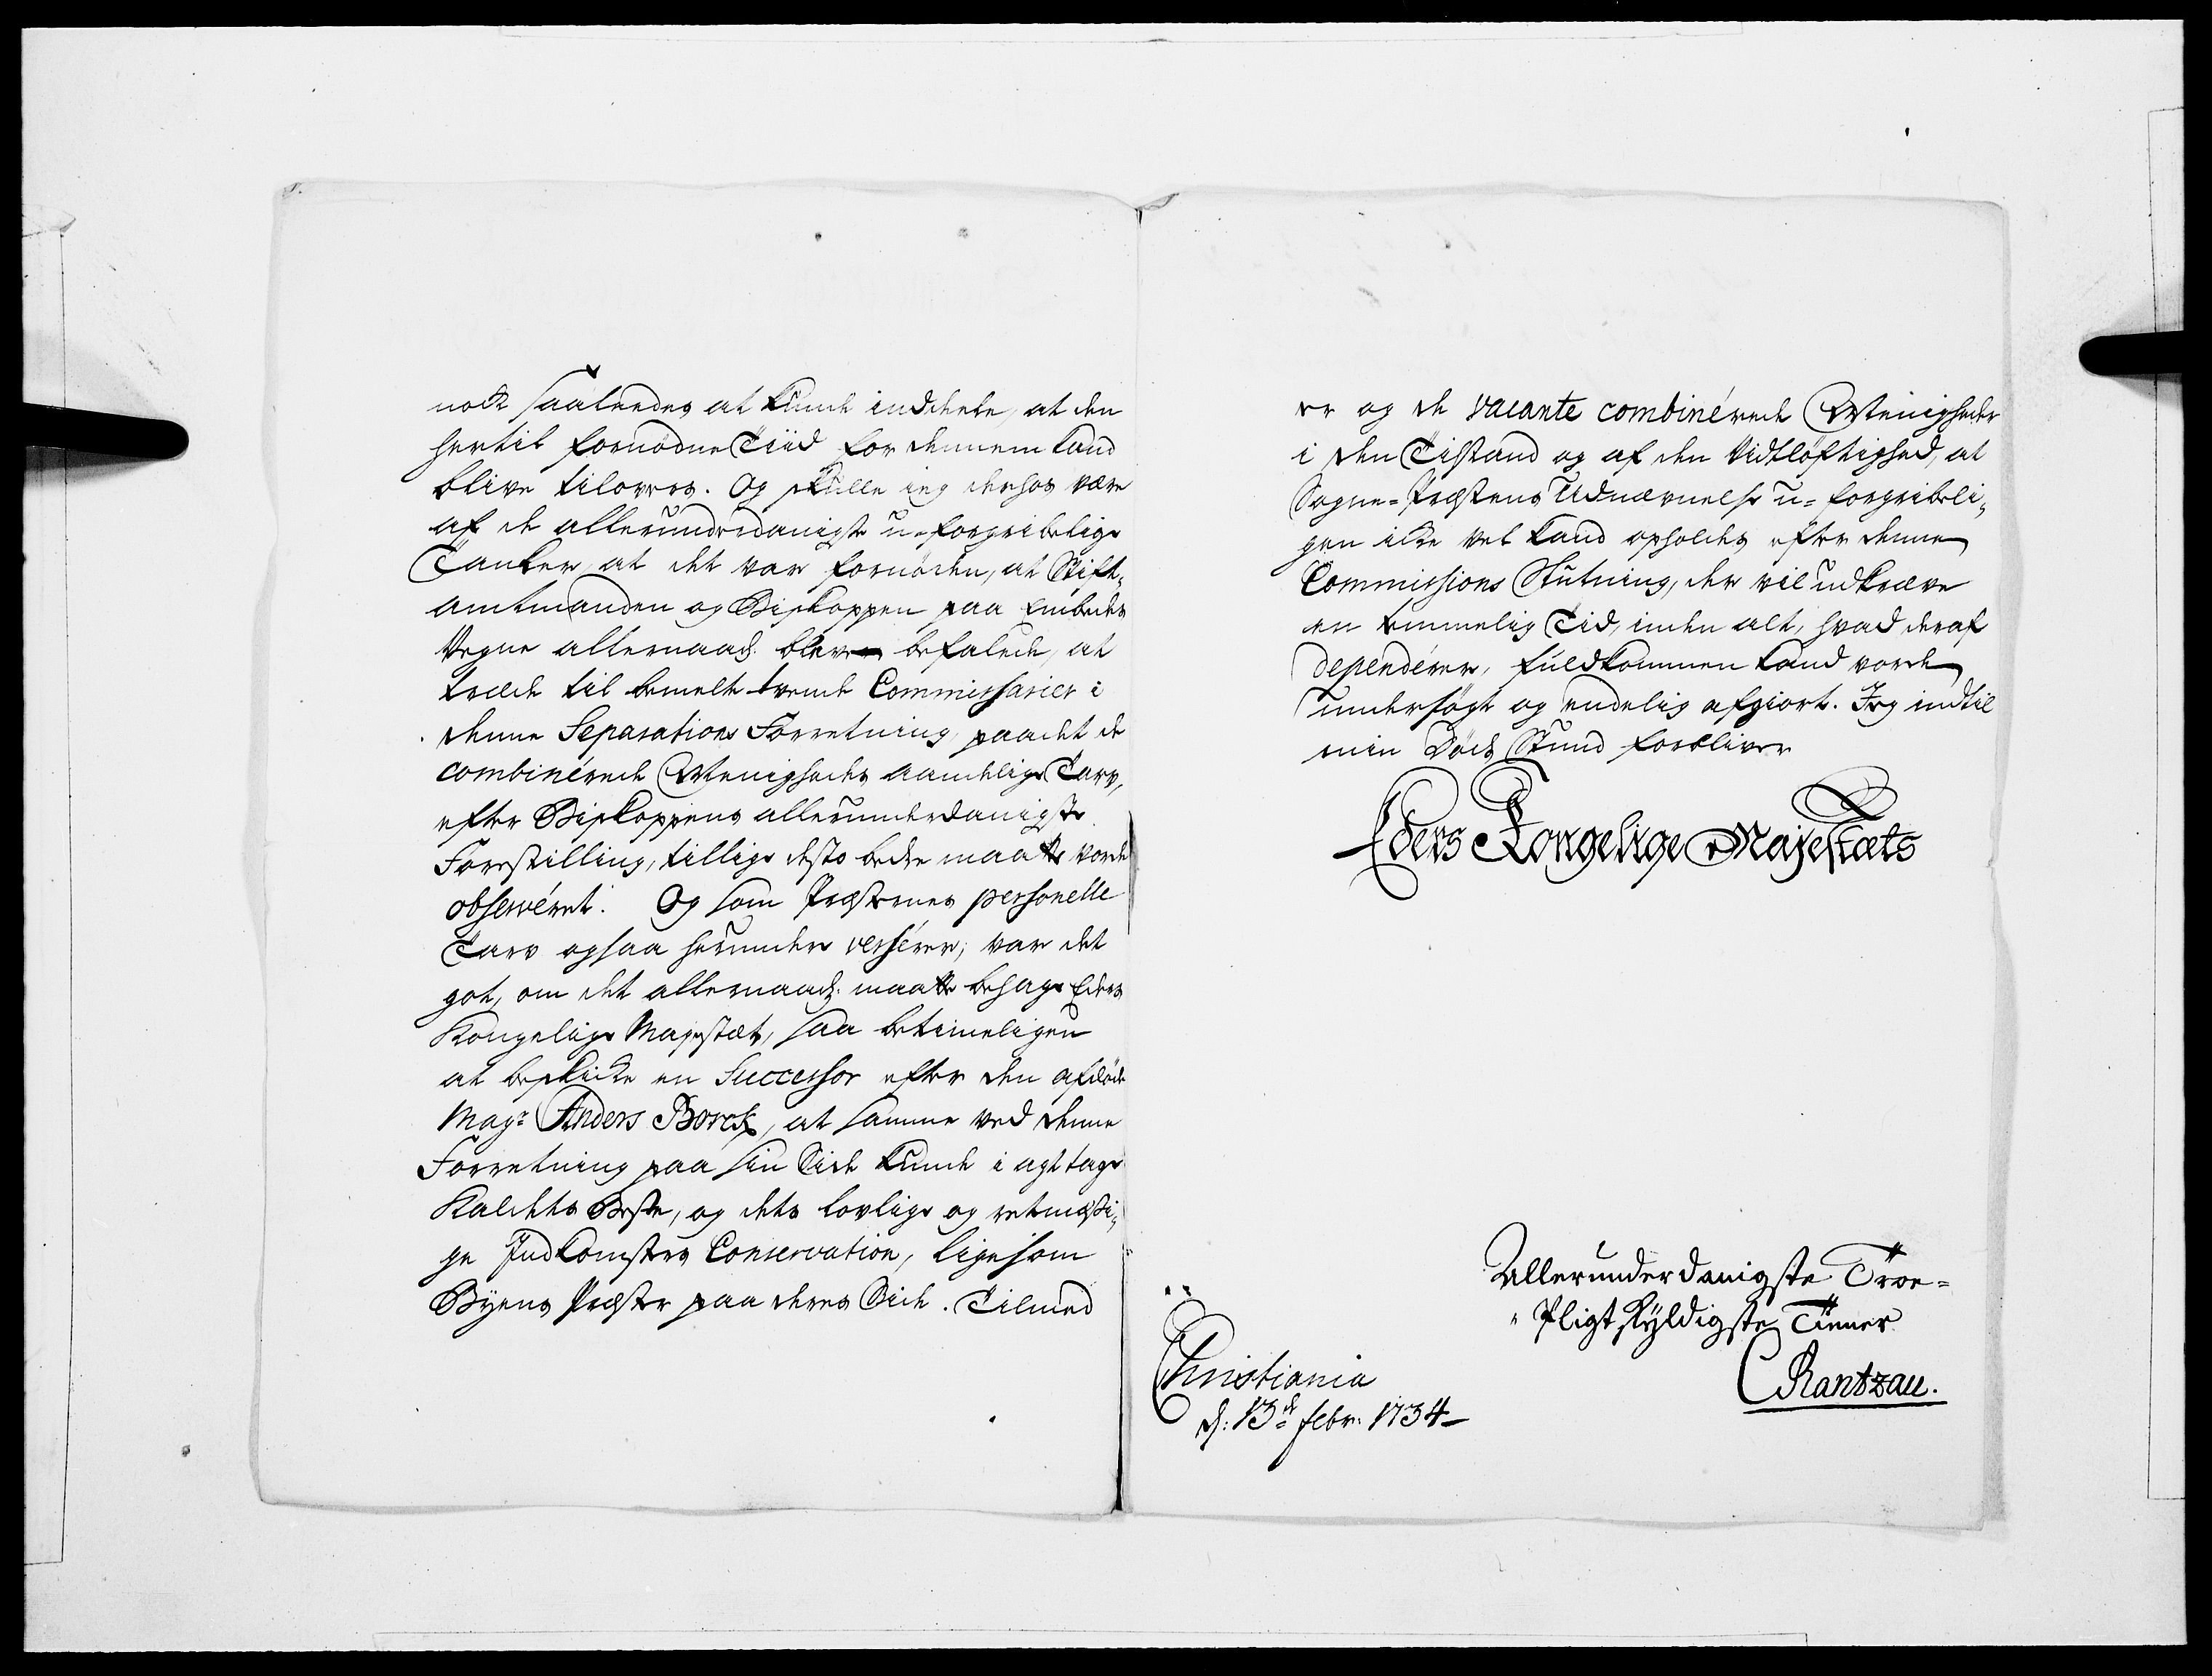 nock saaleedes at kunde inddeele, at den
hertil fornødne Tiid for dennem kand
blive tilovers. Og skulle ieg derhos være
af de allerunderdanigste u-forgribelige
Tanker, at det var fornøden, at Stift-
amtmanden og Biskoppen paa Embeds
Vegne allernaad. bleve befalede, at
træde til bemelte tvende Commissarier i
denne Separations Forretning, paa det de
combinérede Meenigheds aandelige Tarv,
efter Biskoppens allerunderdanigste
Forestilling, tillige desto bedre maatte vorde
observéret. Og som Præsternes personelle
Tarv ogsaa herunder versérer, var det
got, om det allernaad. maatte behage Eders
Kongelige Majestæt, saa betimeligen
at beskicke en Successor efter den afdøde
Magr Anders Borck, at samme ved denne
Forretning paa sin Side kunde i agttage
Kaldets Beste, og dets lovlige og retmæssi-
ge Indkomsters Conservation, ligesom
Byens Præster paa deres Side. Tilmed
er og de vacante combinérede Meenigheder
i den Tilstand og af den Vidtløftighed, at
Sogne-Præstens Udnævnelse u-forgribeli-
gen icke vel kand opholdes efter denne
Commissions Slutning, der vil udkræve
en temmelig Tid, inden alt, hvad deraf
dependérer, fuldkommen kand vorde
undersøgt og endelig afgiort. Jeg indtil
min Døds Stund forbliver
Eders Kongelige Majestæts
Allerunderdanigste Troe-
Pligtskyldigste Tiener
CRantzau.
Christiania
d: 13de febr: 1734